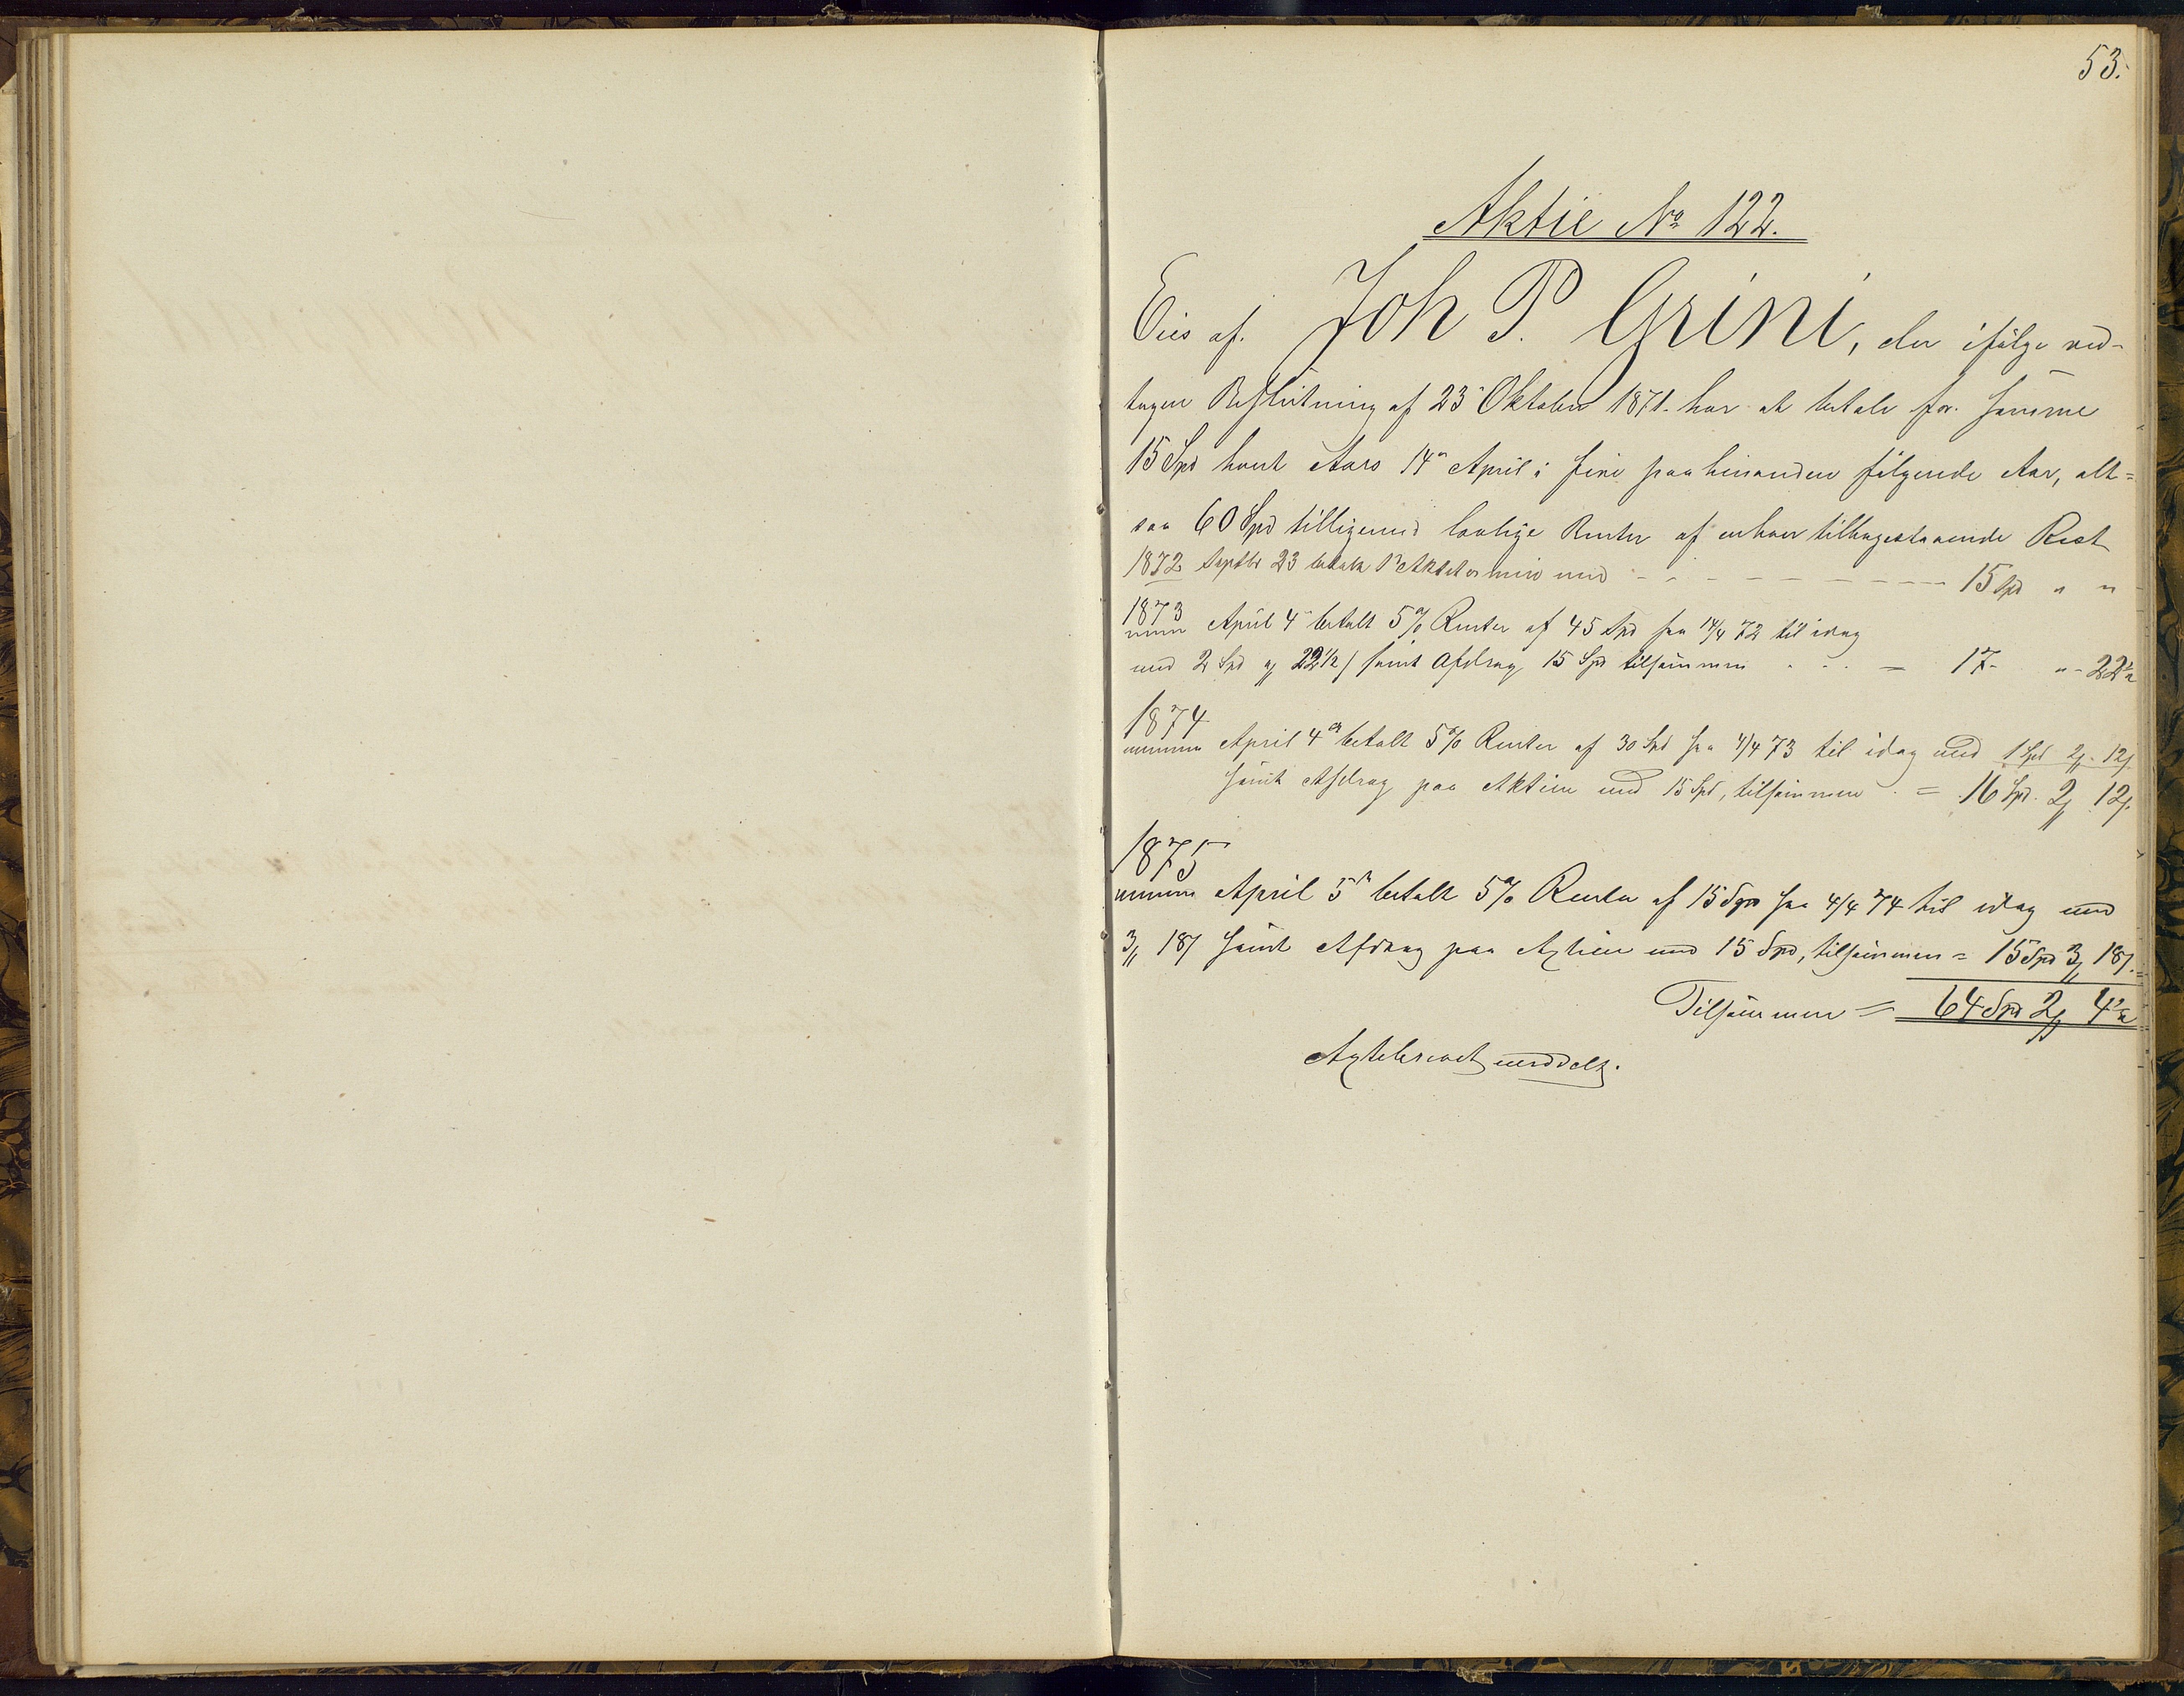 53.
Aktie No 122.
Eies af. Joh P. Grini, der ifølge ved-
tagen Beslutning af 23' Oktober 1871. har at betale for. samme
15 Spd hvert Aars 14de April i fire paa hinanden følgende Aar, alt=
saa 60 Spd tilligemed lovlige Renter af enhver tilbagestaaende Rest
1872 Septbr 23 betalt 1ste Aktietermin med - - - - - - - 15 Spd " "
1873
April 4de betalt 5% Renter af 45 Spd fra 14/4 72 til idag
med 2 Spd og 22 1/2 ſ samt Afdrag 15 Spd tilsammen . . . = 17- "- 22 1/2
1874
April 4de betalt 5% Renter af 30 Spd fra 4/4 73 til idag med 1 Spd 2 ƒ. 12 ſ
samt Afdrag paa Aktien med 15 Spd, tilsammen . = 16 Spd. 2 ƒ 12 ſ.
1875
April 5te betalt 5% Renter af 15 Spd fra 4/4 74 til idag med
3 ƒ 18 ſ samt Afdrag paa Axtien med 15 Spd, tilsammen = 15 Spd 3 ƒ 18 ſ. =
Tilsammen = 64 Spd 2 ƒ 4 1/2
Axtebrevet meddelt.